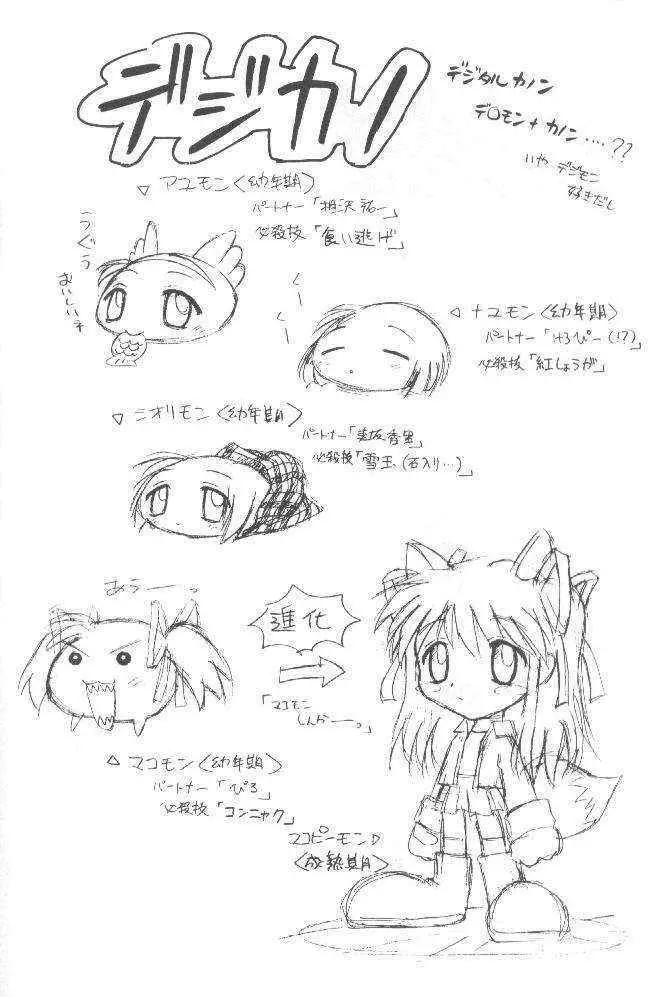 デジカノ
デジタルカノン
デ○モン+カノン‥‥??
いや デジモン
好きだし
▽アユモン<幼年期>
パートナー「相沢祐一」
必殺技「食い逃げ」
うぐぅ
おいしいヨ
くー
くー
◁ナユモン<幼年期>
パートナー「けろぴー(17)」
必殺技「紅しょうが」
▽シオリモン<幼年期>
パートナー「美坂香里」
必殺技「雪玉(石入り…)」
あぅーーっ
進化
「マコモン
しんかーーっ」
△マコモン<幼年期>
パートナー「ぴろ」
必殺技「コンニャク」
マコピーモン▷
<成熟期>